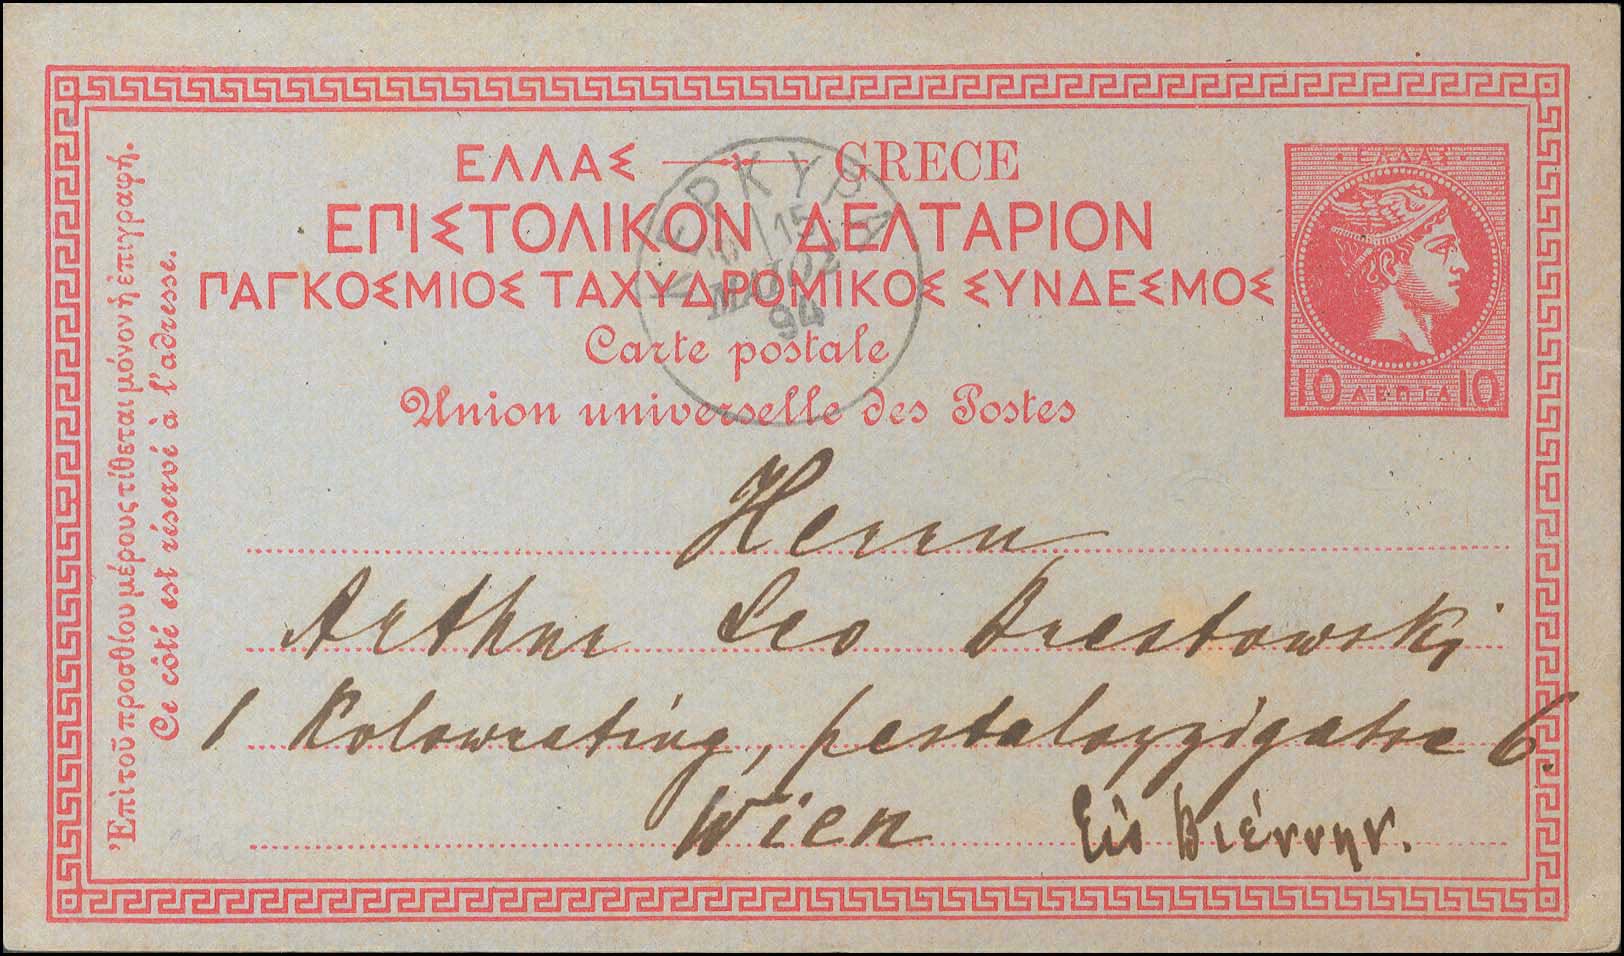 ΕΛΛΑΣ GRECE
ΕΠΙΣΤΟΛΙΚΟΝ ΔΕΛΤΑΡΙΟΝ
ΠΑΓΚΟΣΜΙΟΣ ΤΑΧΥΔΡΟΜΙΚΟΣ ΣΥΝΔΕΣΜΟΣ
Carte postale
Union universelle des Postes
Ἐπὶ τοῦ προσθίου μέρους τίθεται μόνον ἡ ἐπιγραφή.
Ce côté est réservé à l'adresse.
ΚΕΡΚΥΡΑ
15
94
10 ΛΕΠΤΑ 10
Herrn
Arthur Leo Brestowski
1 Kolowratring, pestalozzigasse 6.
Wien Εἰς Βιέννην.